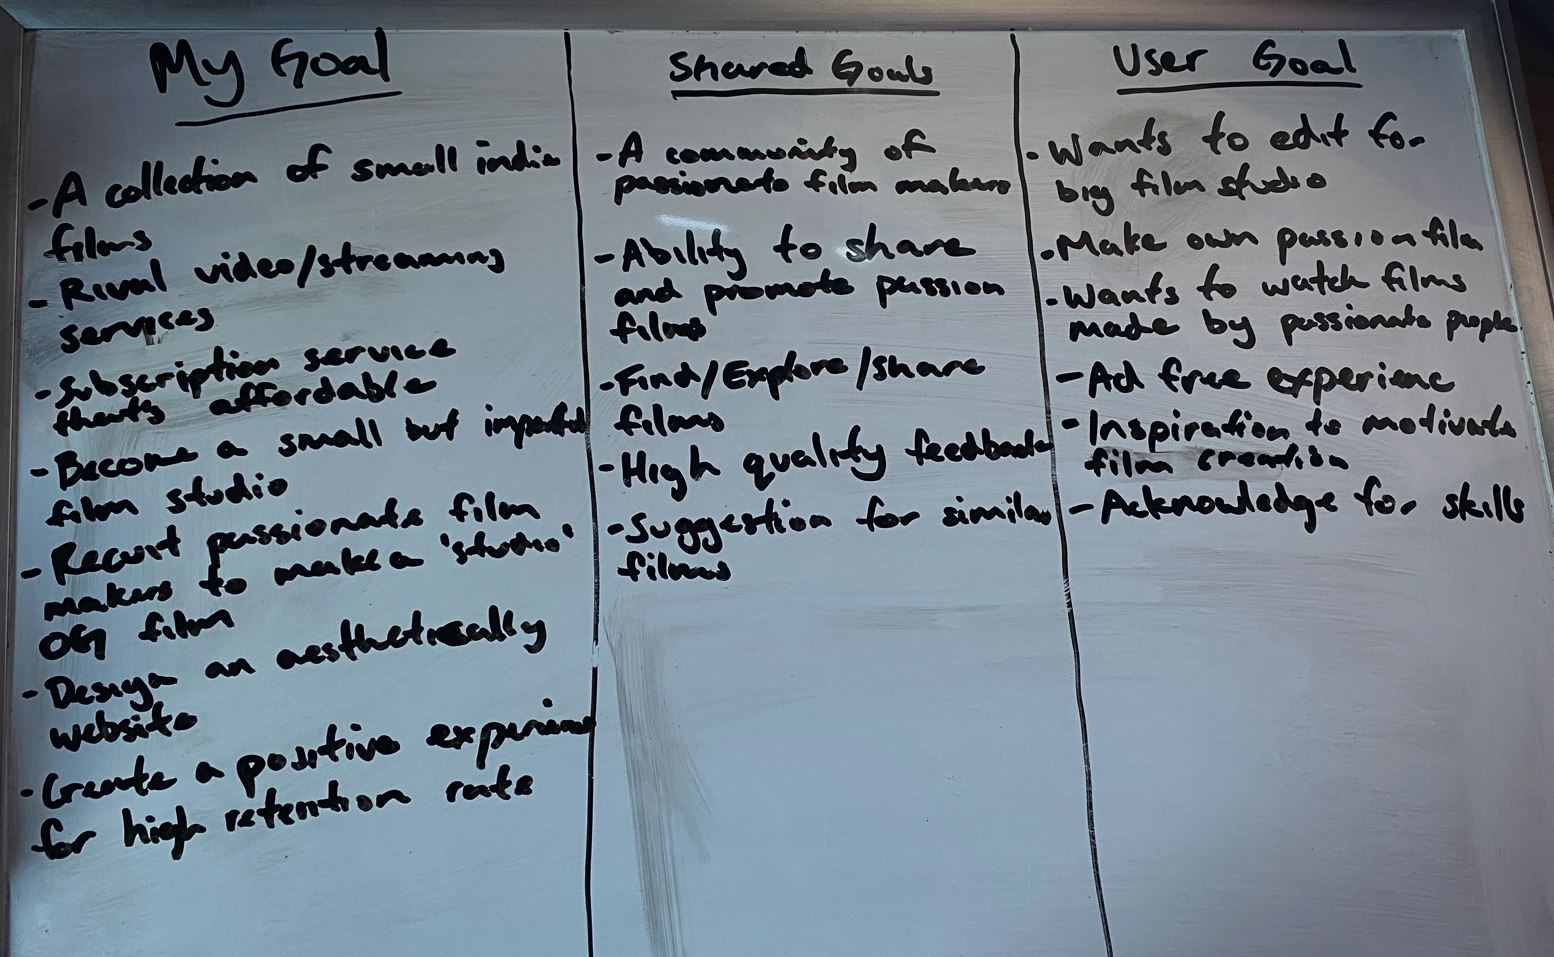 My Goal
- A collection of small indie
films
- Rival video/streaming
services
- Subscription service
thats affordable
- Become a small but impactful
film studio
- Recruit passionate film
makers to make a 'studio'
OG film
- Design an aesthetically
website
- Create a positive experience
for high retention rate
Shared Goals
- A community of
passionate film makers
- Ability to share
and promote passion
films
- Find/Explore/share
films
- High quality feedback
- Suggestion for similar
films
User Goal
- Wants to edit for
big film studio
- Make own passion film
- Wants to watch films
made by passionate people
- Ad free experienc
- Inspiration to motivate
film creation
- Acknowledge for skills